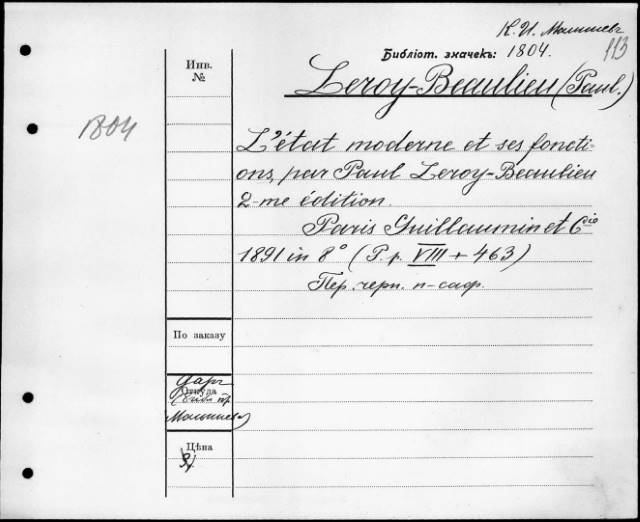 К. И. Малышевъ
113
Библіот. значекъ: 1804.
Инв.
№
Leroy-Beaulieu (Paul.)
1804
L'état moderne et ses foncti-
ons, par Paul Leroy-Beaulieu
2-me édition.
Paris Guillaumin et Cie
1891 in 8° (P. p. VIII + 463)
Пер. черн. п-саф.
По заказу
Даръ
Откуда
Малышева)
Цѣна